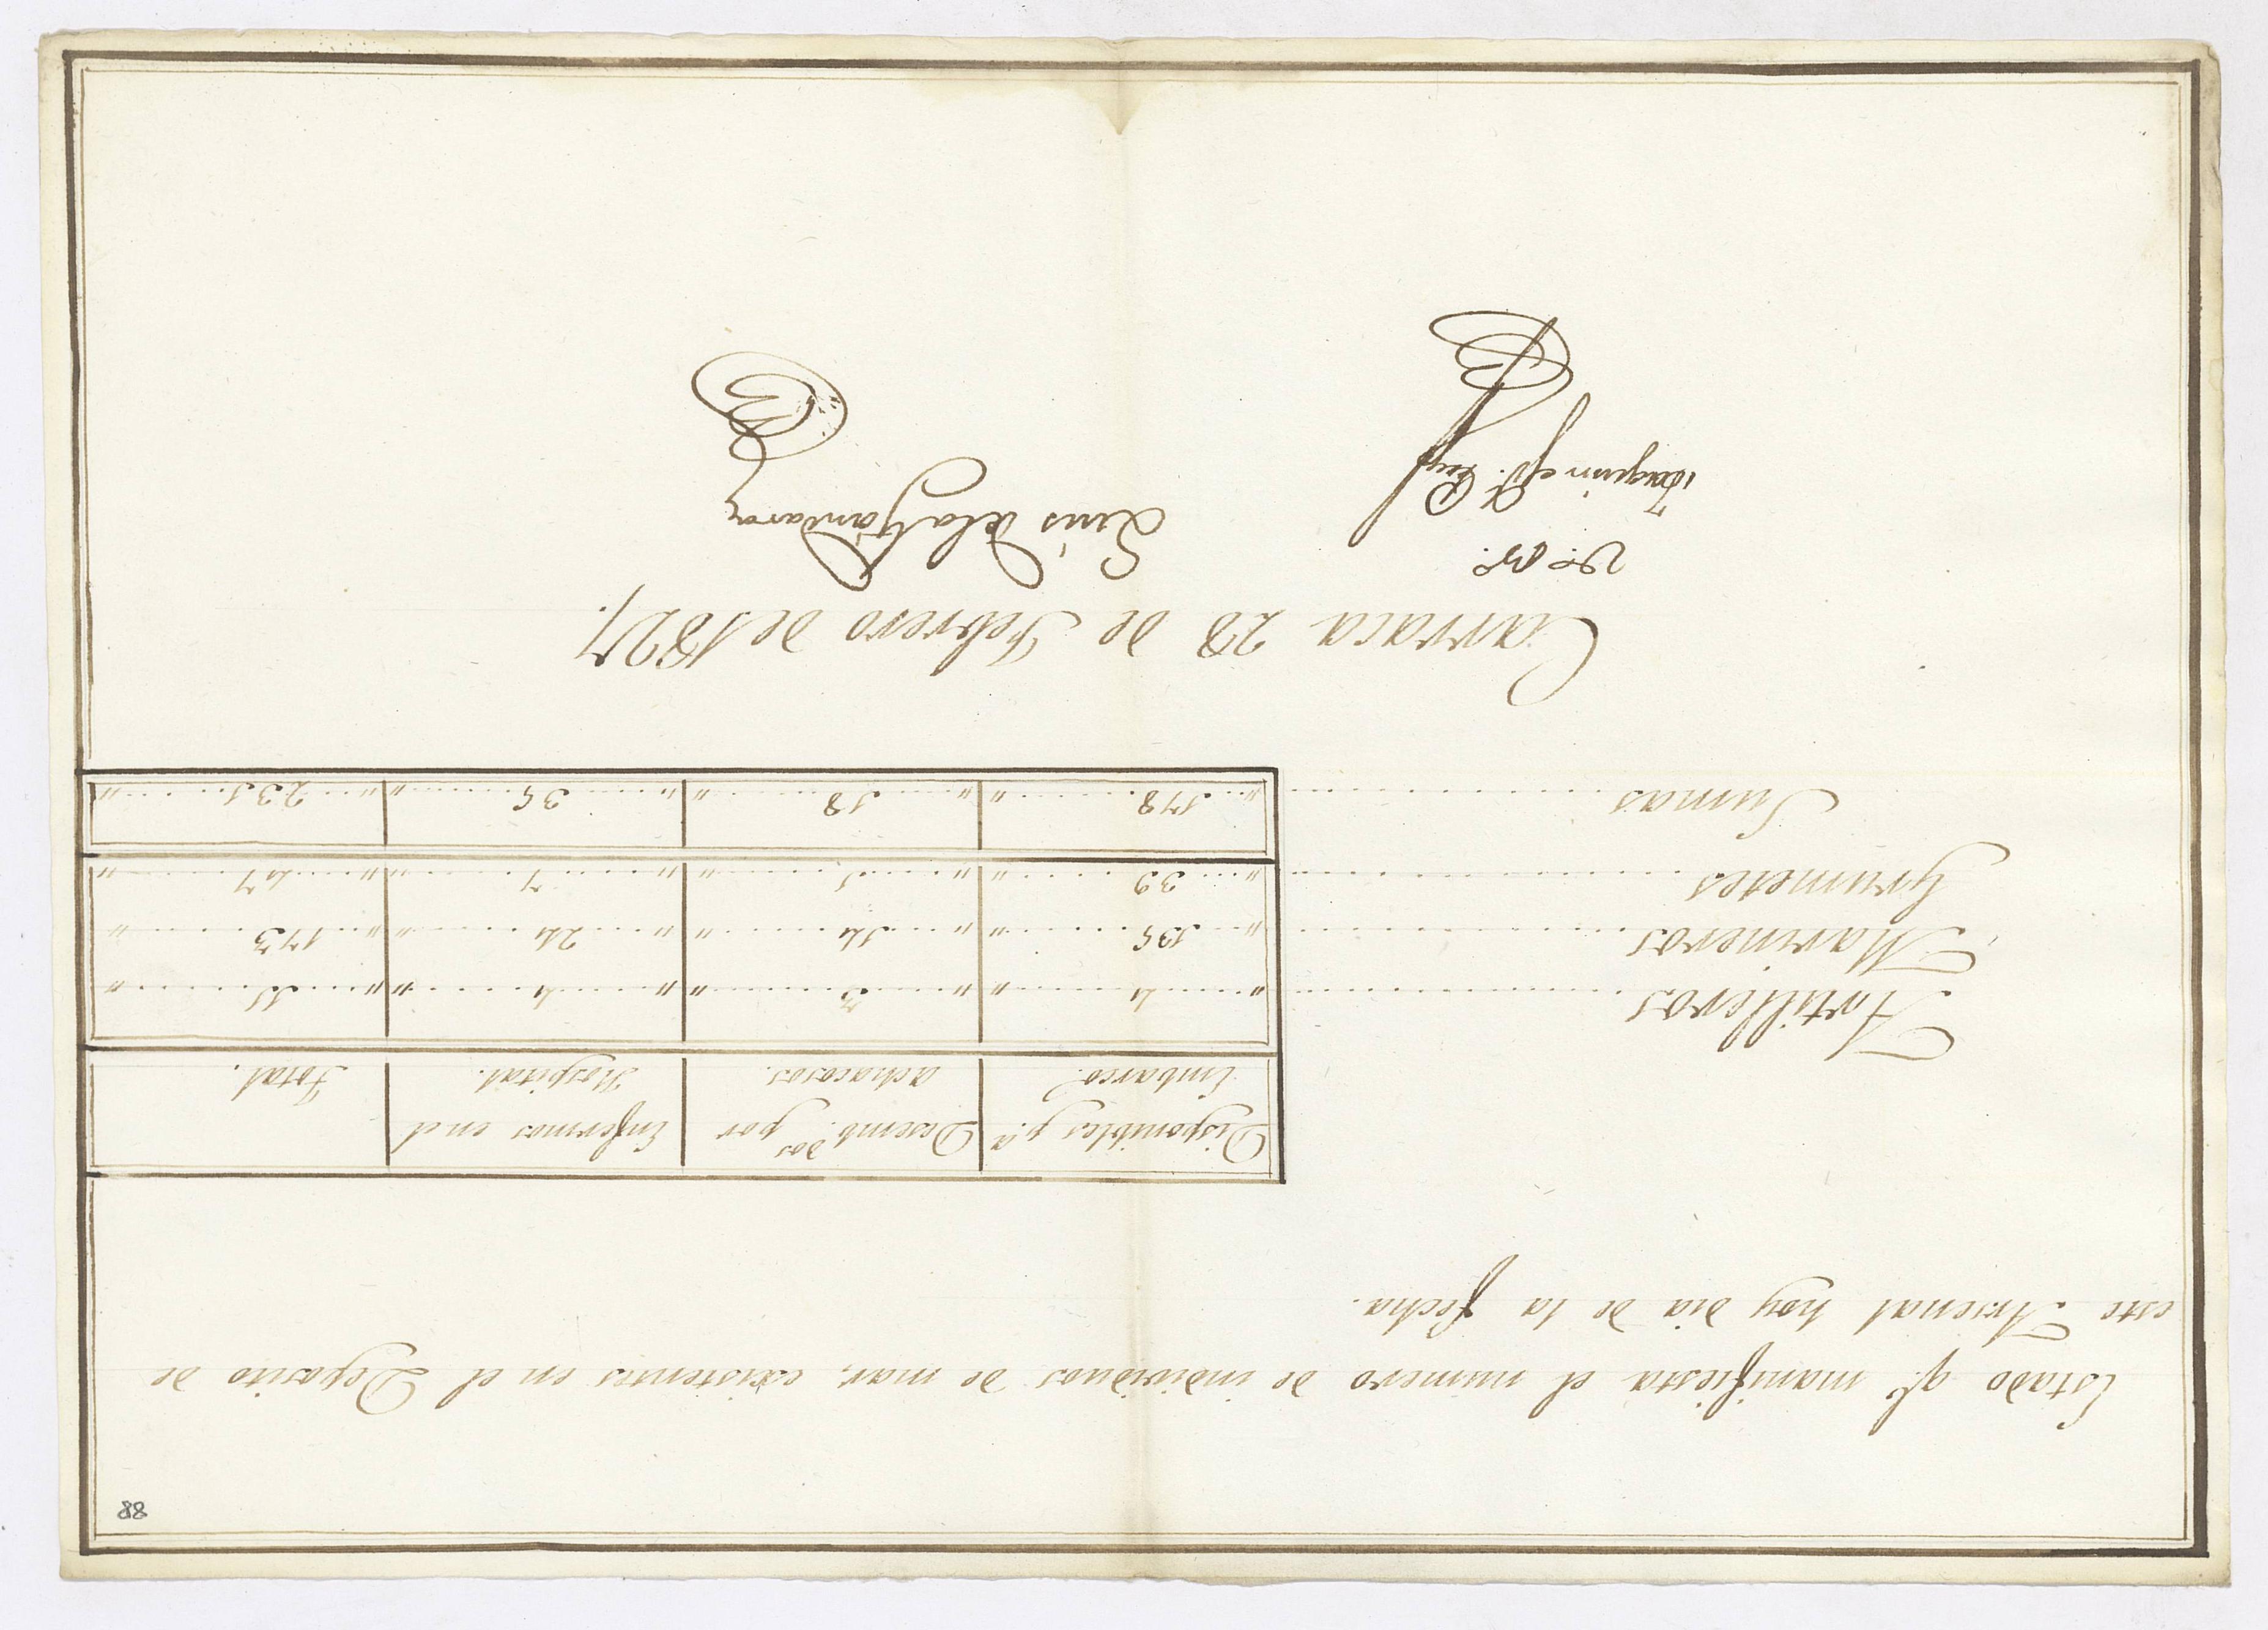 88
Estado q.e manifiesta el numero de individuos de mar, existentes en el Deposito de
este Arsenal hoy dia de la fecha.
Disponibles p.a Embarco. Desemb.dos por achacosos. Enfermos en el Hospital. Total.
Artilleros 4 3 4 11
Marineros 135 14 24 173
Grumetes 39 1 7 47
Sumas 178 18 35 231
Carraca 28 de Febrero de 1827.
V.o B.o
Joaquin
Luis de la Gándara